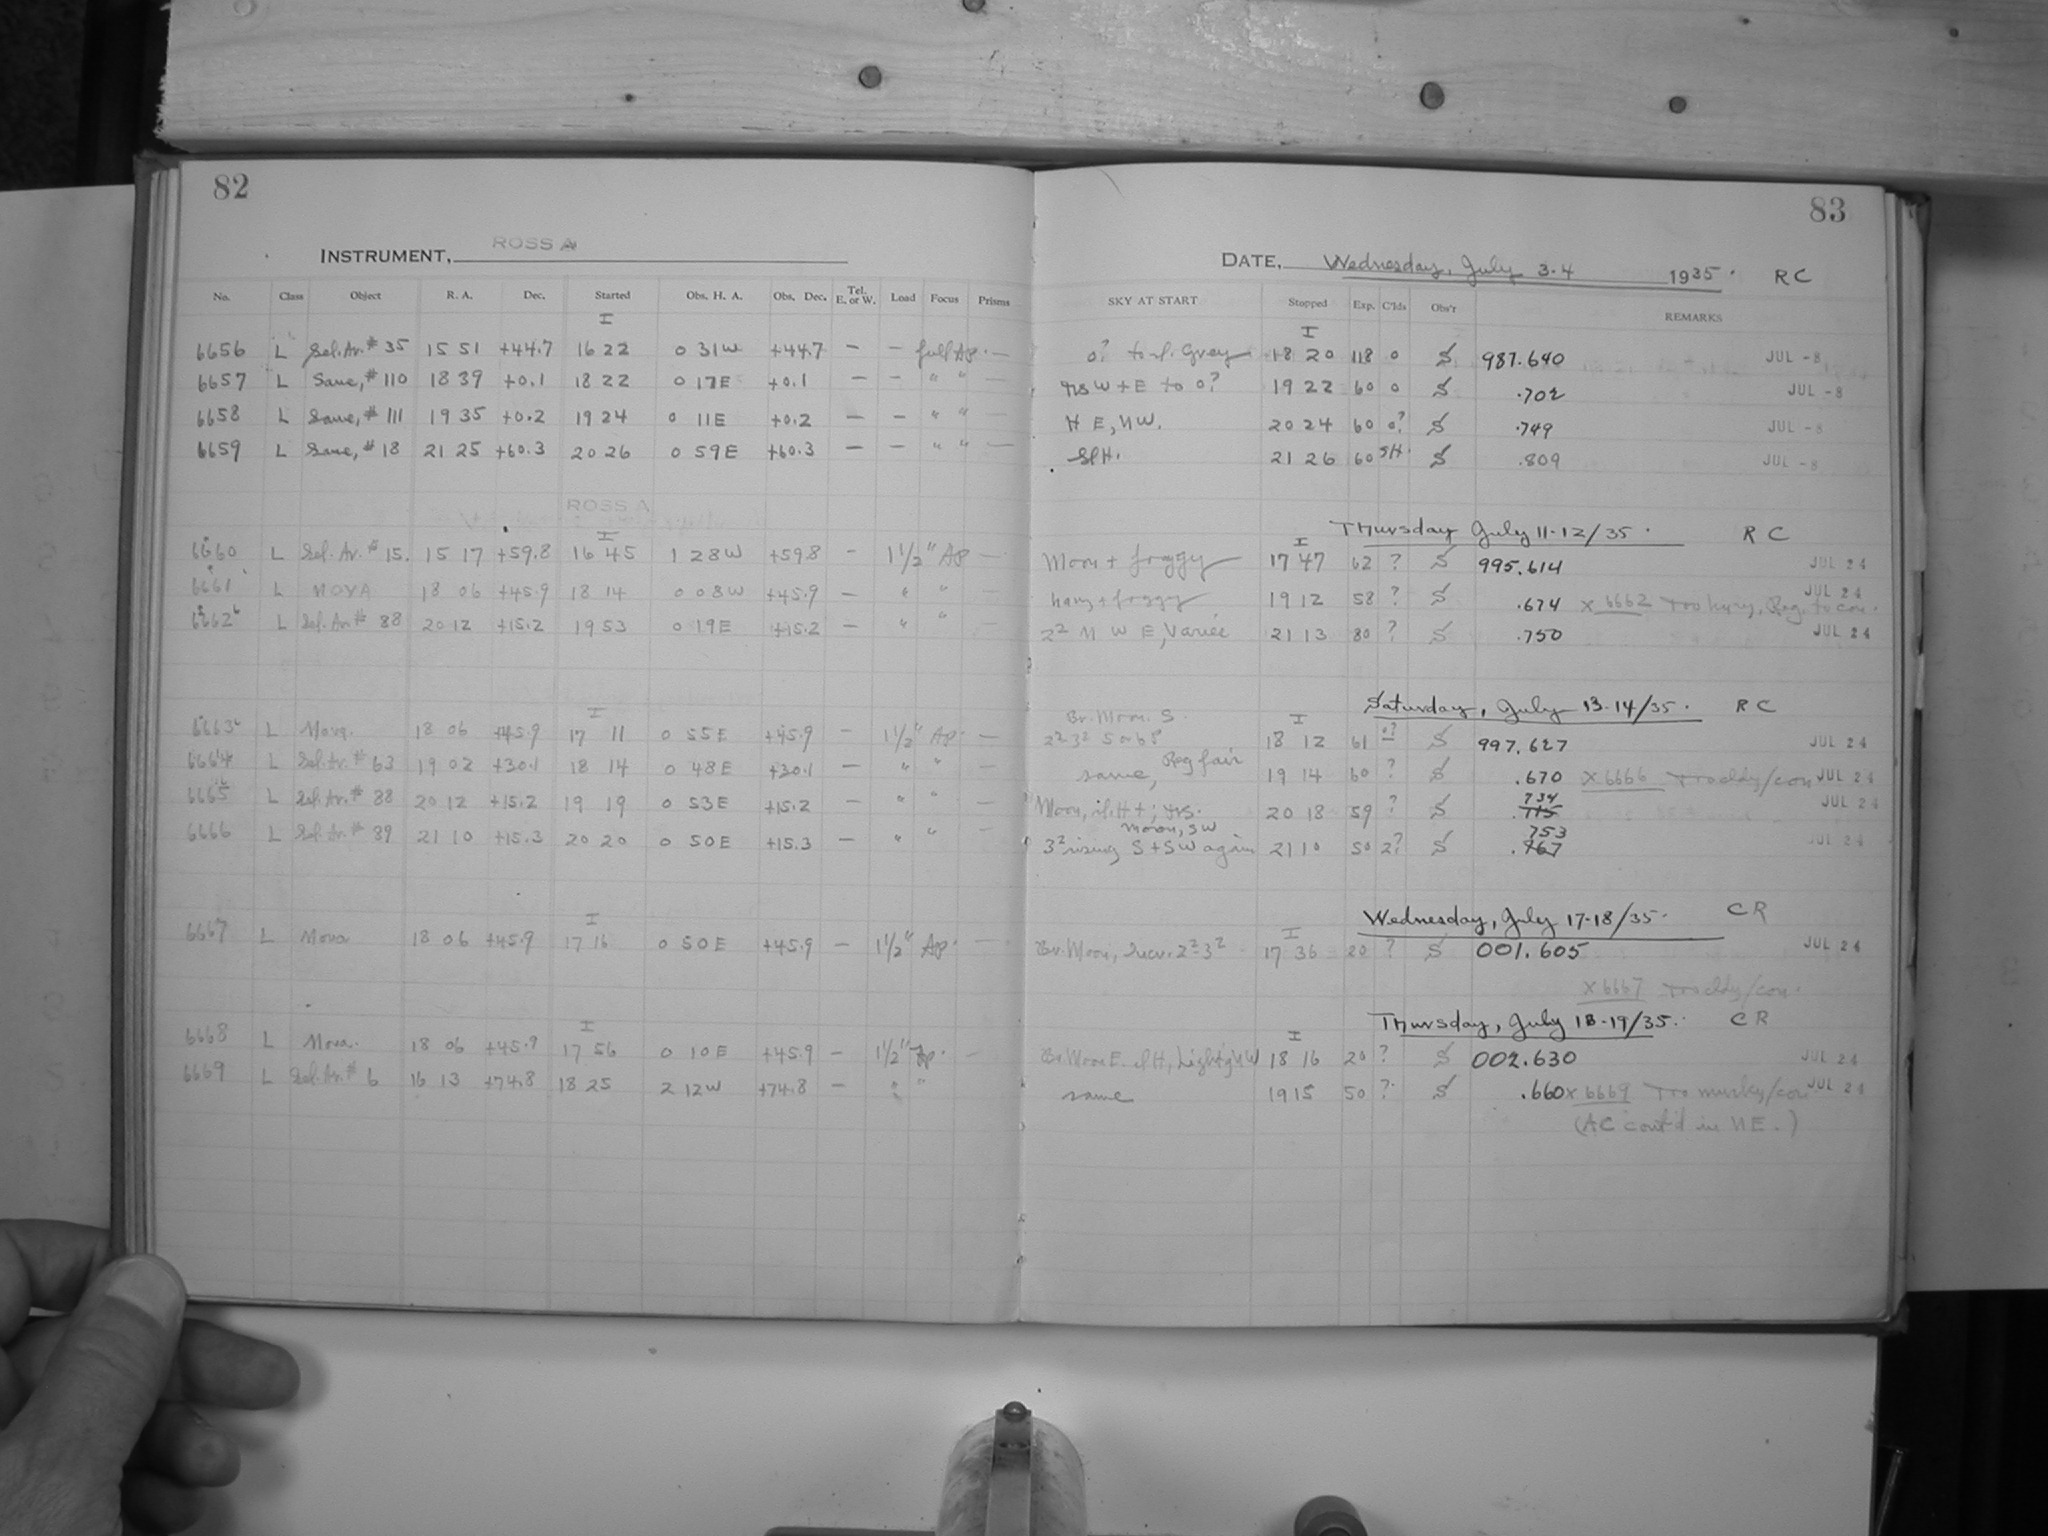 82
INSTRUMENT, ROSS A
No. Class Object R. A. Dec. Started Obs. H. A. Obs. Dec. Tel. E. or W. Load Focus Prisms
I
6656 L Sel. Ar. # 35 15 51 +44.7 16 22 0 31W +44.7 — — full Ap. —
6657 L Same, # 110 18 39 +0.1 18 22 0 17E +0.1 — — " " —
6658 L Same, # 111 19 35 +0.2 19 24 0 11E +0.2 — — " " —
6659 L Same, # 18 21 25 +60.3 20 26 0 59E +60.3 — — " " —
ROSS A
I
6660 L Sel. Ar. # 15. 15 17 +59.8 16 45 1 28W +59.8 — 1 1/2" Ap —
6661 L NOVA 18 06 +45.9 18 14 0 08W +45.9 — " " —
6662 L Sel. Ar. # 88 20 12 +15.2 19 53 0 19E +15.2 — " " —
I
6663 L Nova. 18 06 +45.9 17 11 0 55E +45.9 — 1 1/2" Ap. —
6664 L Sel. Ar. # 63 19 02 +30.1 18 14 0 48E +30.1 — " " —
6665 L Sel. Ar. # 88 20 12 +15.2 19 19 0 53E +15.2 — " " —
6666 L Sel. Ar. # 89 21 10 +15.3 20 20 0 50E +15.3 — " " —
I
6667 L Nova 18 06 +45.9 17 16 0 50E +45.9 — 1 1/2" Ap. —
I
6668 L Nova. 18 06 +45.9 17 56 0 10E +45.9 — 1 1/2" Ap. —
6669 L Sel. Ar. # 6 16 13 +74.8 18 25 2 12W +74.8 — " "
83
DATE, Wednesday, July 3-4 1935. RC
SKY AT START Stopped Exp. C'lds Obs'r REMARKS
I
0? to Grey 18 20 118 0 S 987.640 JUL -8
W + E to 0? 19 22 60 0 S .702 JUL -8
H E, NW. 20 24 60 0? S .749 JUL -8
Sl H. 21 26 60 SH. S .809 JUL -8
Thursday July 11-12/35. RC
I
Moon + foggy 17 47 62 ? S 995.614 JUL 24
hazy + foggy 19 12 58 ? S .674 x 6662 Too hazy, Reg. to con. JUL 24
2² N W E, Varied 21 13 80 ? S .750 JUL 24
Saturday, July 13-14/35. RC
Br. Moon. S.
I
2² 3² S 18 12 61 0? S 997.627 JUL 24
same, Reg fair 19 14 60 ? S .670 x 6666 Too cldy/con JUL 24
Moon, H+; 20 18 59 ? S .715 734 JUL 24
Moon, SW
3² rising S + SW again 21 10 50 2? S .767 753 JUL 24
Wednesday, July 17-18/35. CR
I
Br. Moon, 2² 3². 17 36 20 ? S 001.605 JUL 24
x 6667 Too cldy/con.
Thursday, July 18-19/35. CR
I
Br. Moon E. Sl H, W 18 16 20 ? S 002.630 JUL 24
same 19 15 50 ? S .660 x 6669 Too murky/con JUL 24
(AC cont'd in NE.)